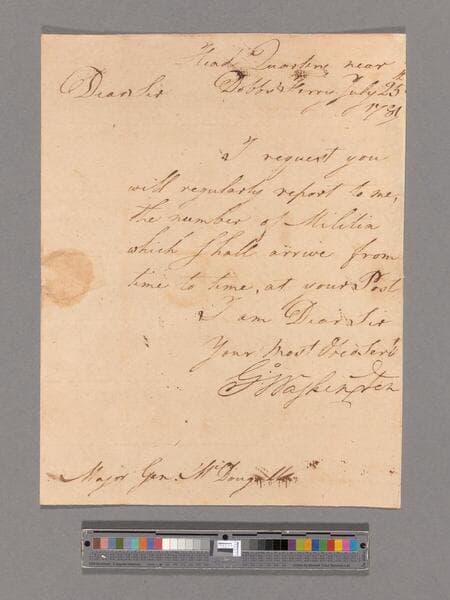 Head Quarters near
Dear Sir Dobbs's Ferry July 25th
1781
I request you
will regularly report to me,
the number of Militia
which shall arrive from
time to time, at your Post
I am Dear Sir
Your most Obed Servt
Go Washington
Major Gen. McDougall